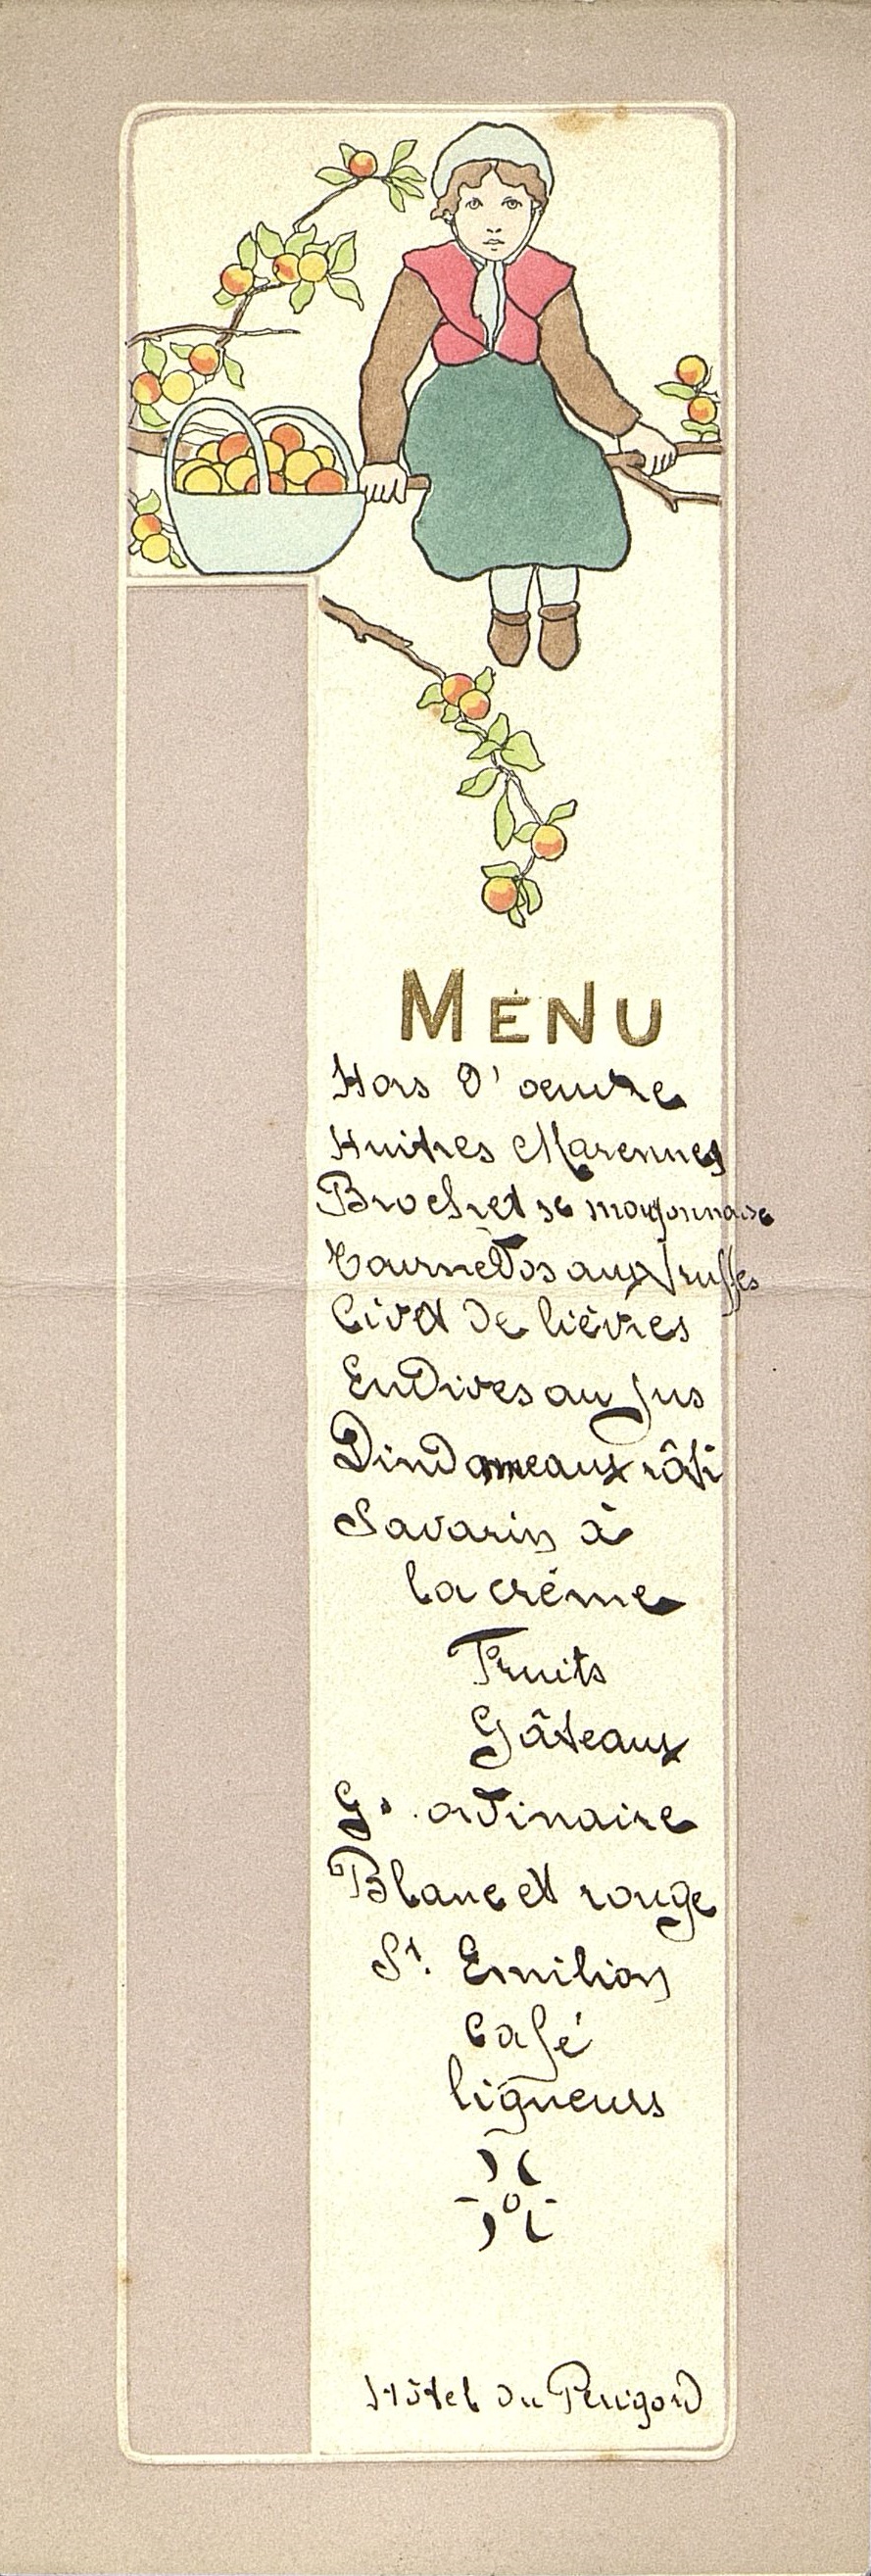 MENU
Hors d'oeuvre
Huitres Marennes
Brochet se mayonnaise
Tournedos aux truffes
Civet de lièvres
Endives au jus
Dindonneaux rôti
Savarin à
la crème
Fruits
Gâteaux
Gd ordinaire
Blanc et rouge
St. Emilion
Café
liqueurs
Hôtel du Perigord